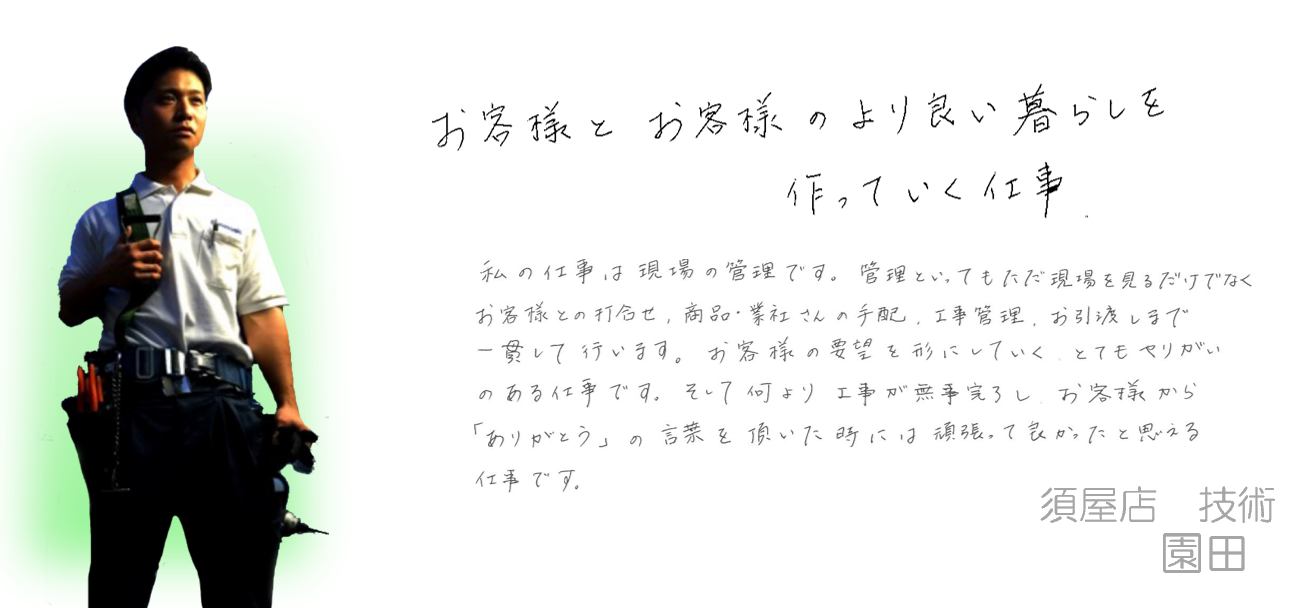 お客様とお客様のより良い暮らしを
作っていく仕事.
私の仕事は現場の管理です。管理といってもただ現場を見るだけでなく
お客様との打合せ、商品・業社さんの手配、工事管理、お引渡しまで
一貫して行います。お客様の要望を形にしていく、とてもやりがい
のある仕事です。そして何より工事が無事完了し、お客様から
「ありがとう」の言葉を頂いた時には頑張って良かったと思える
仕事です。
須屋店　技術
園田